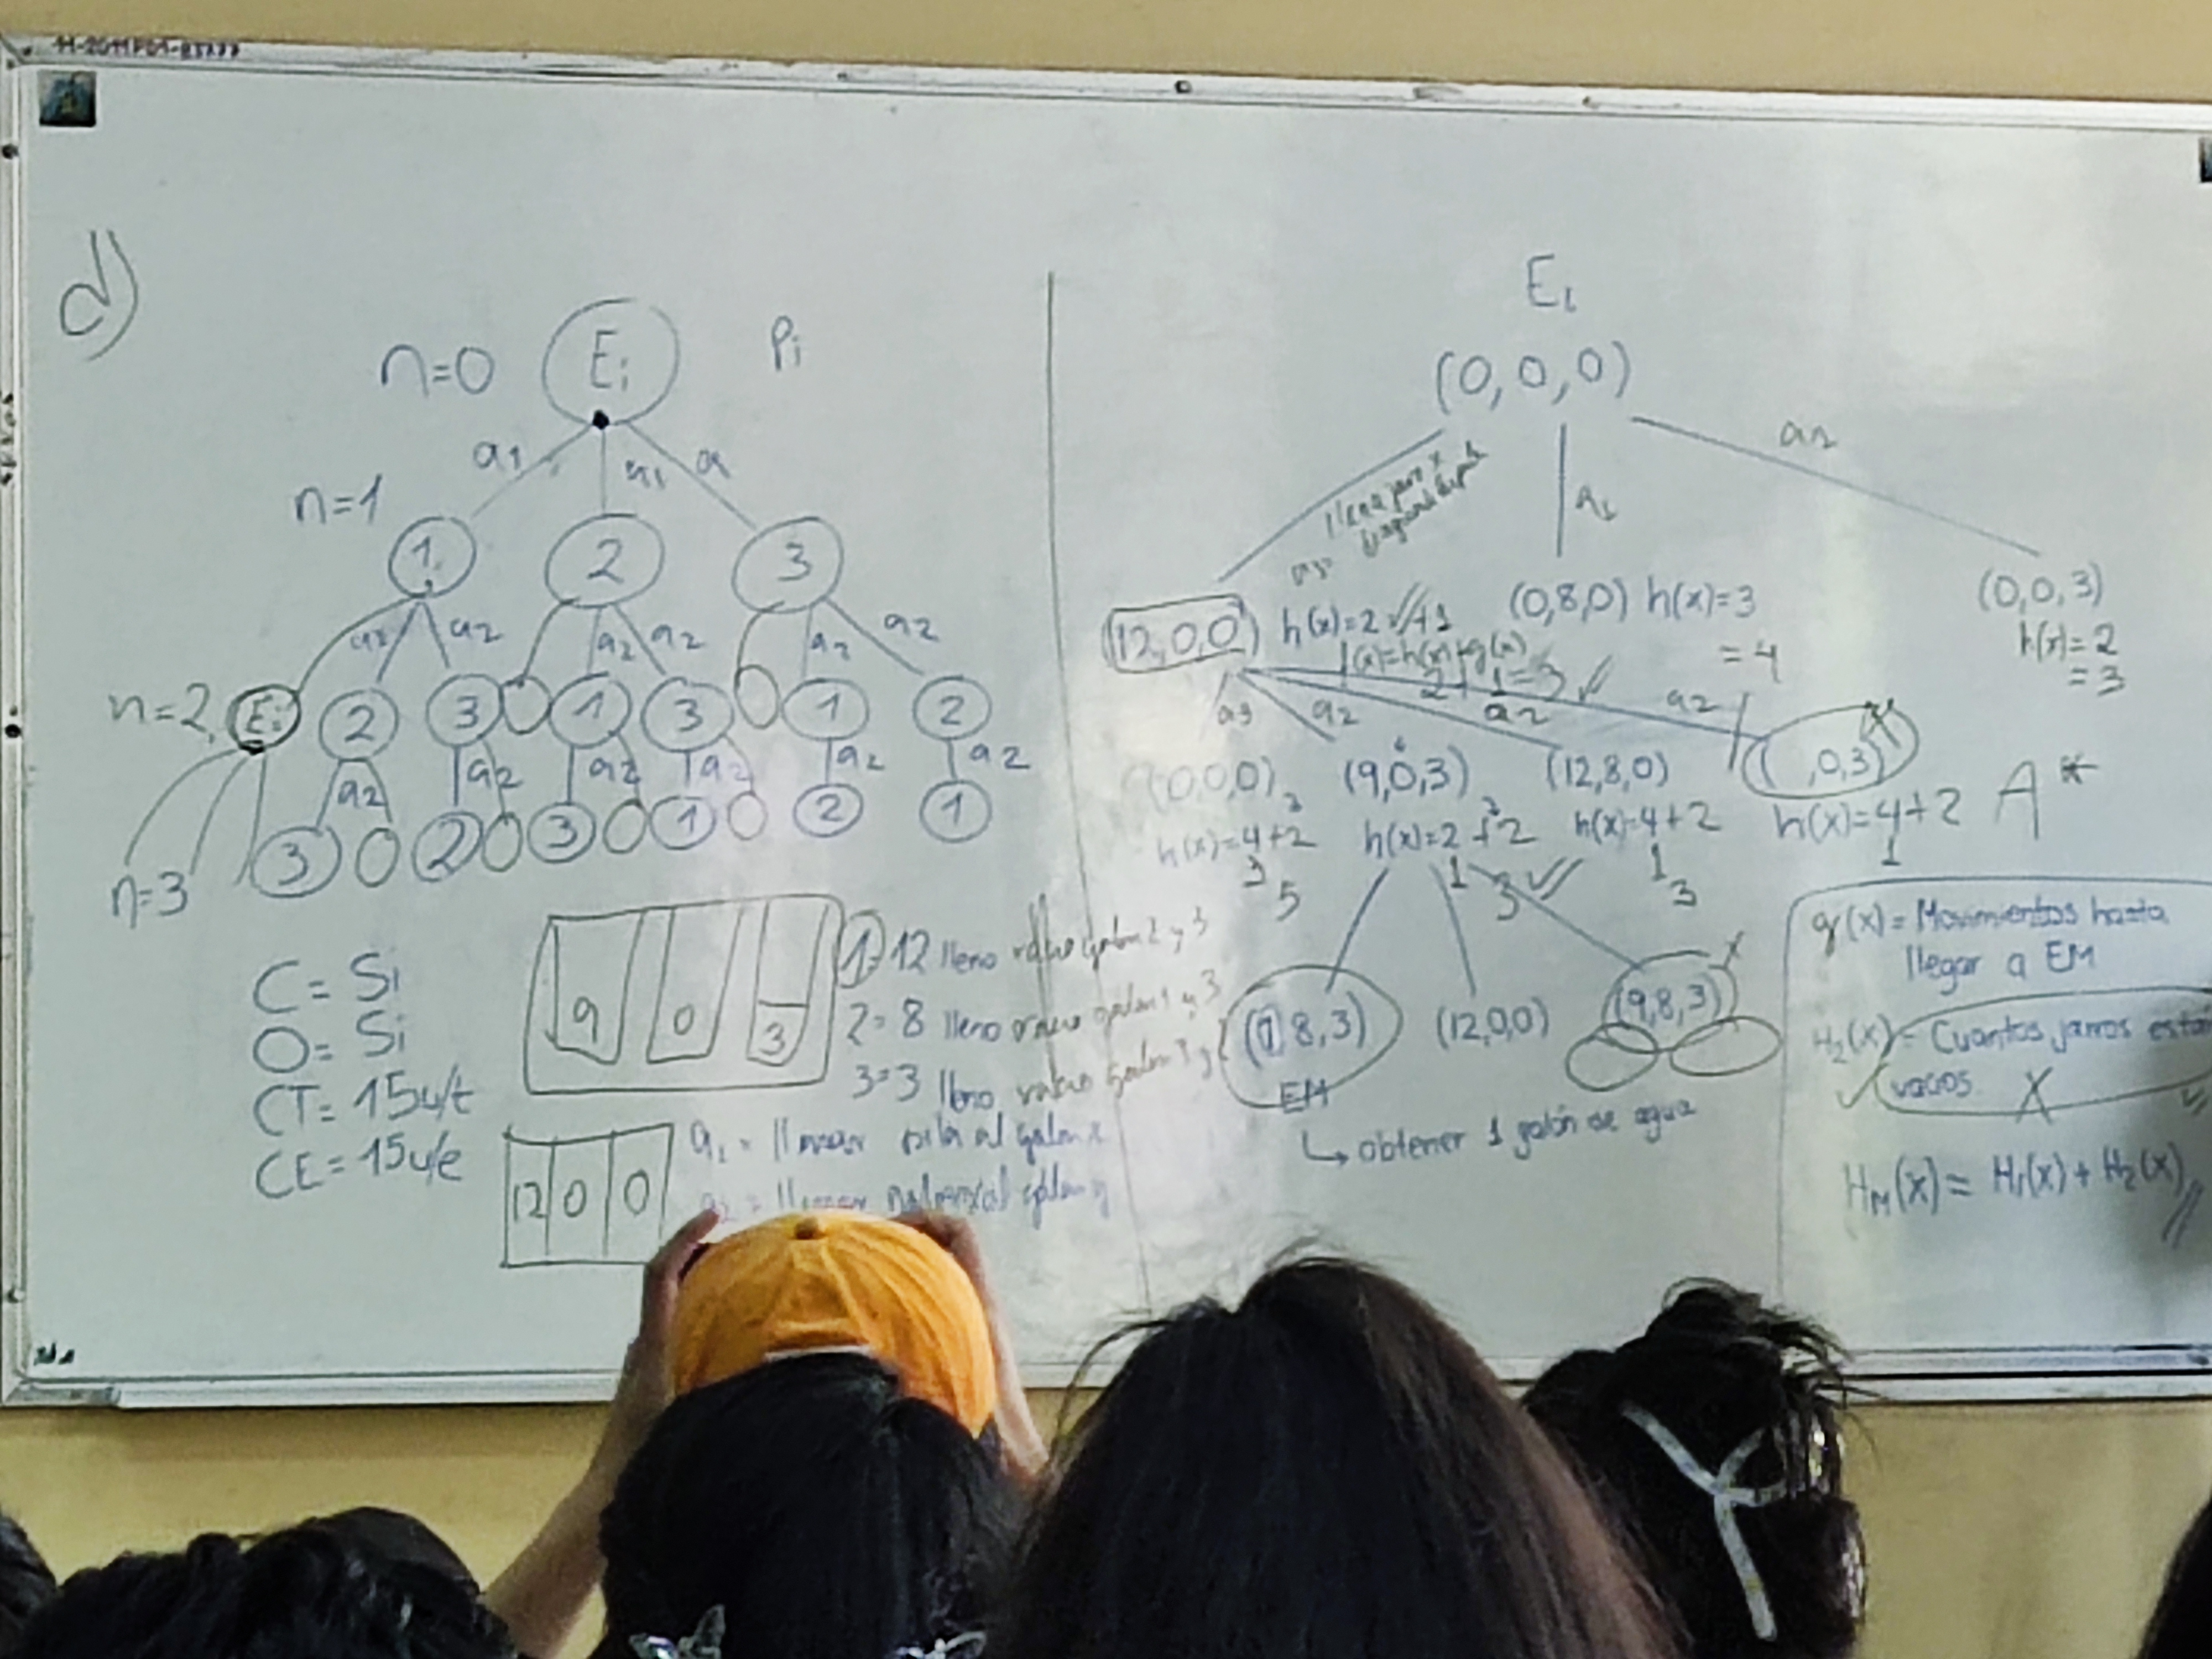 d)
n=0
Ei
Pi
a1 a1 a
n=1
1 2 3
a2 a2 a2 a2 a2 a2
n=2
Ei 2 3 1 3 1 2
a2 a2 a2 a2 a2 a2
n=3
3 2 3 1 2 1
C= Si
O= Si
CT= 15u/t
CE= 15u/e
9 0 3
1=12 lleno vacio galon 2 y 3
2= 8 lleno vacio galon 1 y 3
3=3 lleno vacio galon 1 y 2
12 0 0
a1 = llenar pila al galon x
a2 = llenar galon x al galon y
Ei
(0,0,0)
llena jarro x
a1
a2
(12,0,0)
h(x)=2 +1
(x)=h(x)+g(x)
2+1=3
(0,8,0) h(x)=3
= 4
(0,0,3)
h(x)=2
=3
a3 a2 a2 a2
(0,0,0) (9,0,3) (12,8,0) ( ,0,3)
A*
h(x)=4+2
3
5
h(x)=2+2
1 3
h(x)=4+2
1
3
h(x)=4+2
1
(1 8,3) (12,0,0) (9,8,3) x
EM
↳ obtener 1 galón de agua
g(x)= Movimientos hasta
llegar a EM
H2(x)= Cuantos jarros esta
vacios. X
HM(x)= H1(x) + H2(x)